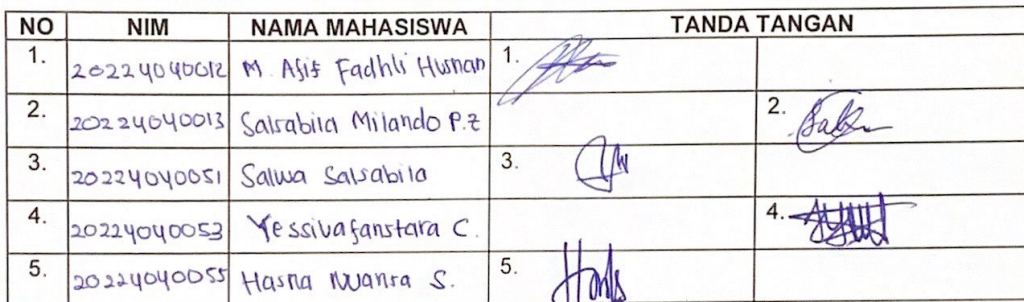 NO NIM NAMA MAHASISWA TANDA TANGAN
1. 20224040012 M. Afif Fadhli Husnan 1.
2. 20224040013 Salsabila Milando P.Z 2.
3. 20224040051 Salwa Salsabila 3.
4. 20224040053 C. 4.
5. 20224040055 Hasna S. 5.